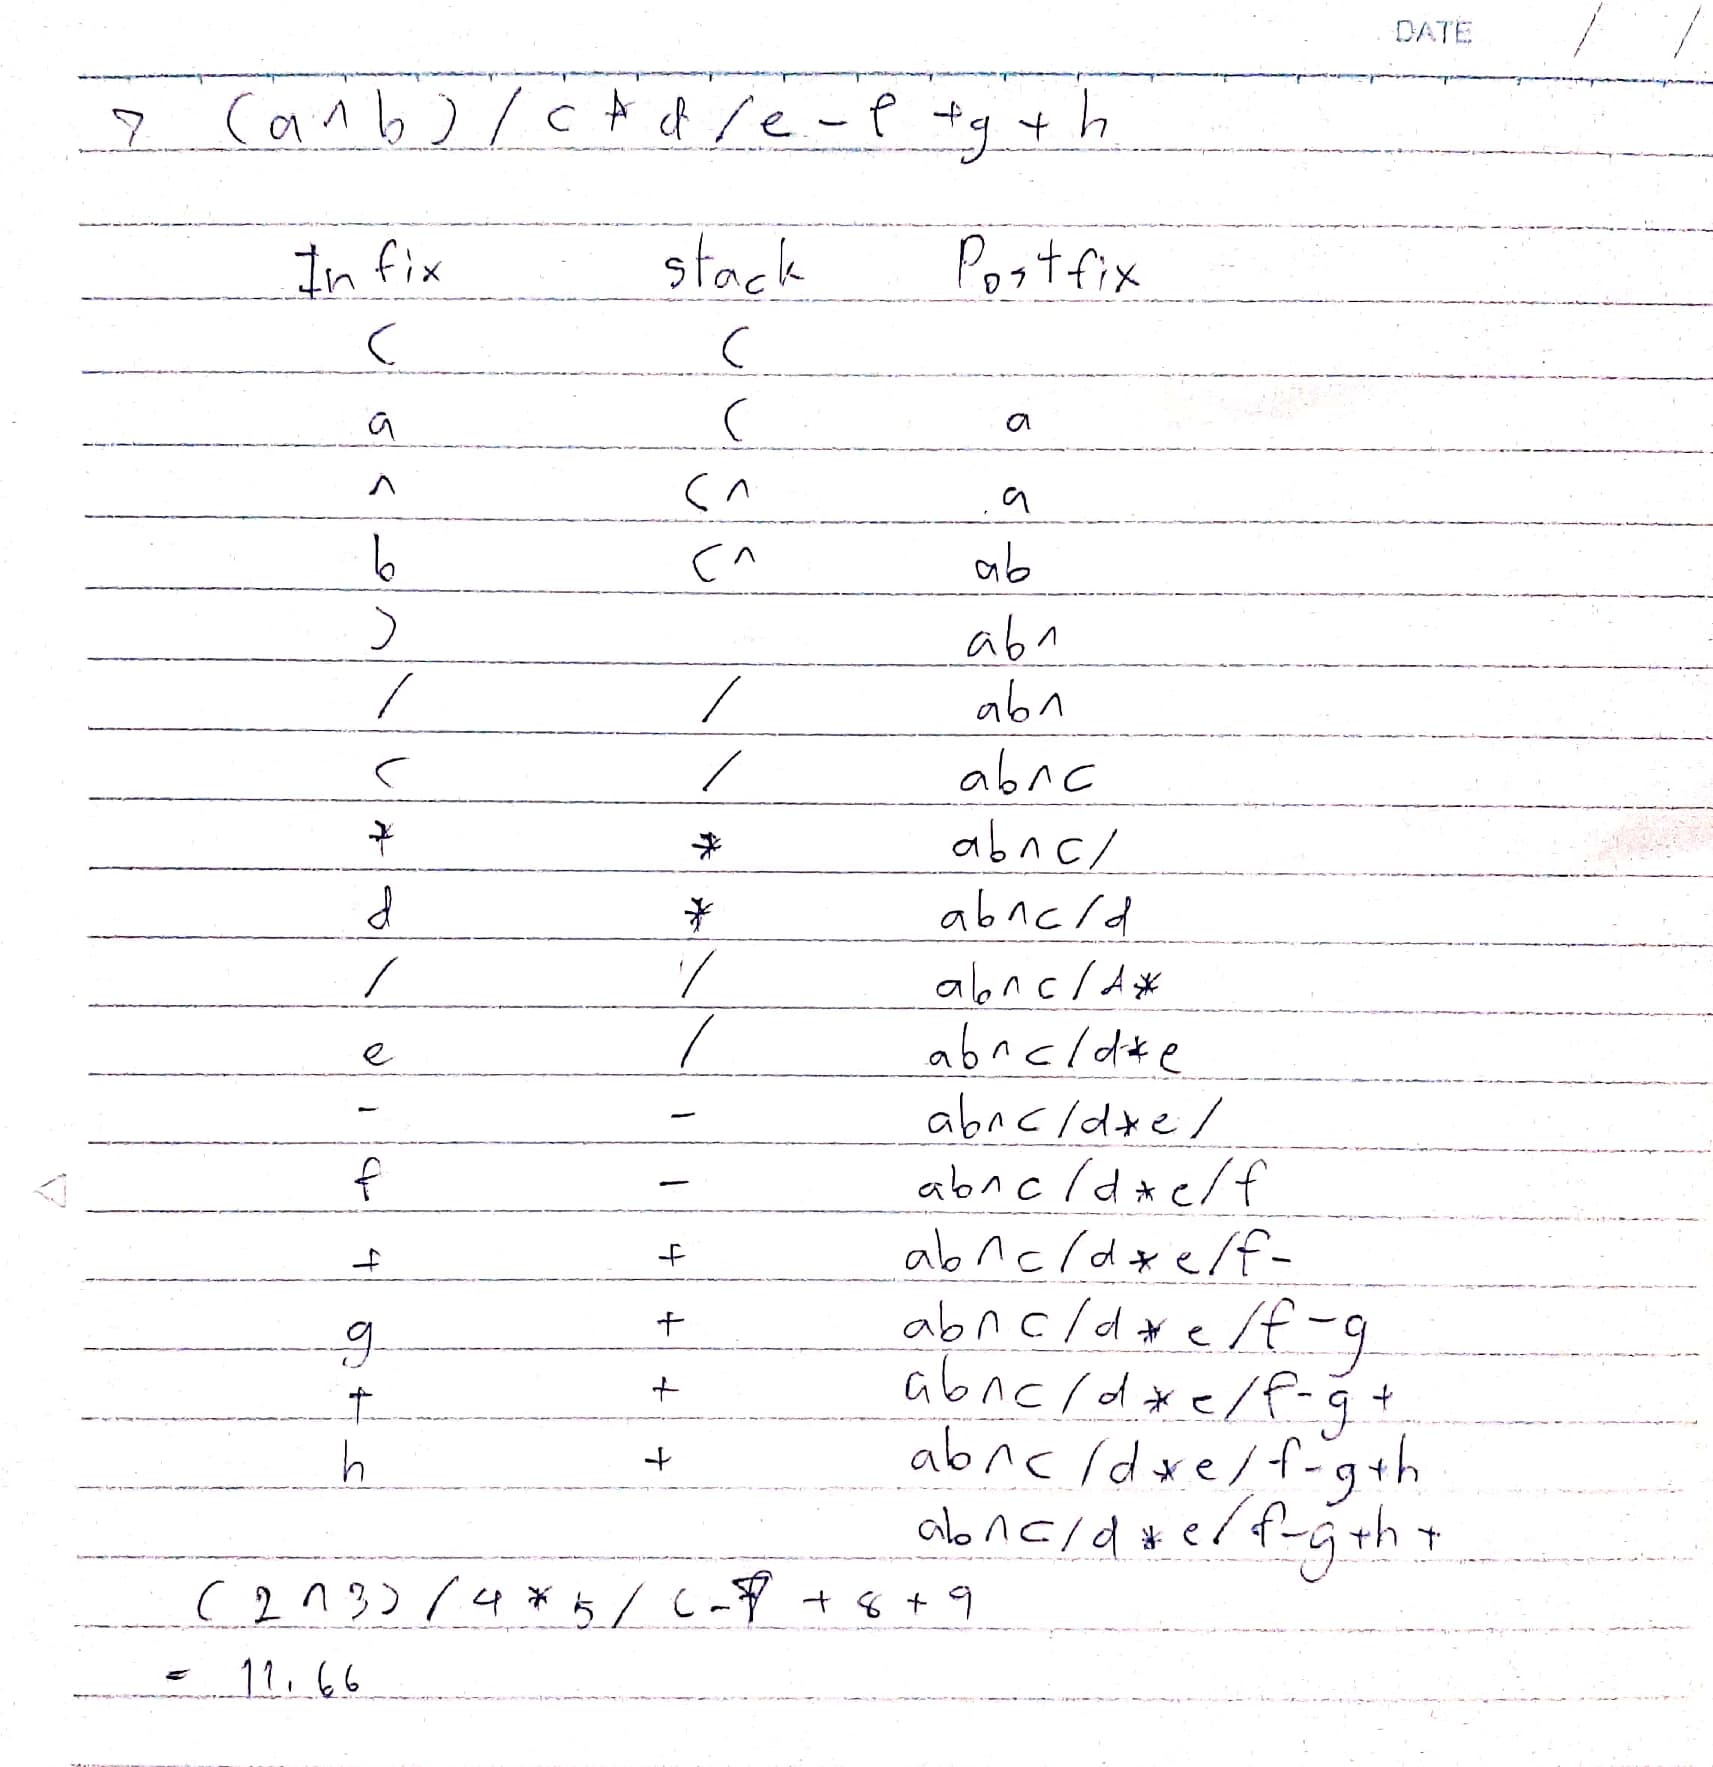 DATE / /
> (a^b)/c*d/e-f+g+h
Infix stack Postfix
( (
a ( a
^ (^ a
b (^ ab
) ab^
/ / ab^
c / ab^c
* * ab^c/
d * ab^c/d
/ / ab^c/d*
e / ab^c/d*e
- - ab^c/d*e/
f - ab^c/d*e/f
+ + ab^c/d*e/f-
g + ab^c/d*e/f-g
+ + ab^c/d*e/f-g+
h + ab^c/d*e/f-g+h
ab^c/d*e/f-g+h+
(2^3)/4*5/6-7+8+9
= 11.66